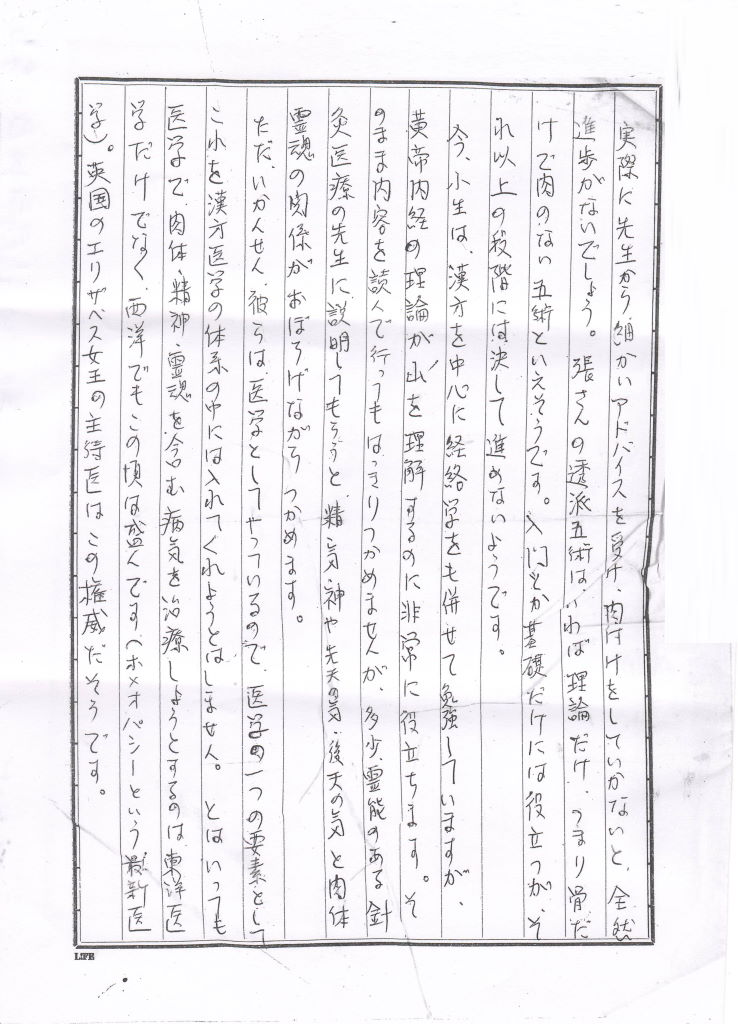 実際に先生から細かいアドバイスを受け、肉付けをしていかないと、全然
進歩がないでしょう。張さんの透派五術は、いわば理論だけ、つまり骨だ
けで肉のない五術といえそうです。入門とか基礎だけには役立つが、そ
れ以上の段階には決して進めないようです。
今、小生は、漢方を中心に経絡学をも併せて勉強していますが、
黄帝内経の理論が「山」を理解するのに非常に役立ちます。そ
のまま内容を読んで行ってもはっきりつかめませんが、多少、霊能のある針
灸医療の先生に説明してもらうと、精・気・神や先天の気・後天の気と肉体
霊魂の関係がおぼろげながらつかめます。
ただ、いかんせん、彼らは医学としてやっているので、医学の一つの要素として
これを漢方医学の体系の中には入れてくれようとはしません。とはいっても
医学で、肉体・精神・霊魂を含む病気を治療しようとするのは東洋医
学だけでなく、西洋でもこの頃は盛んです（ホメオパシーという最新医
学）。英国のエリザベス女王の主待医はこの権威だそうです。
LIFE